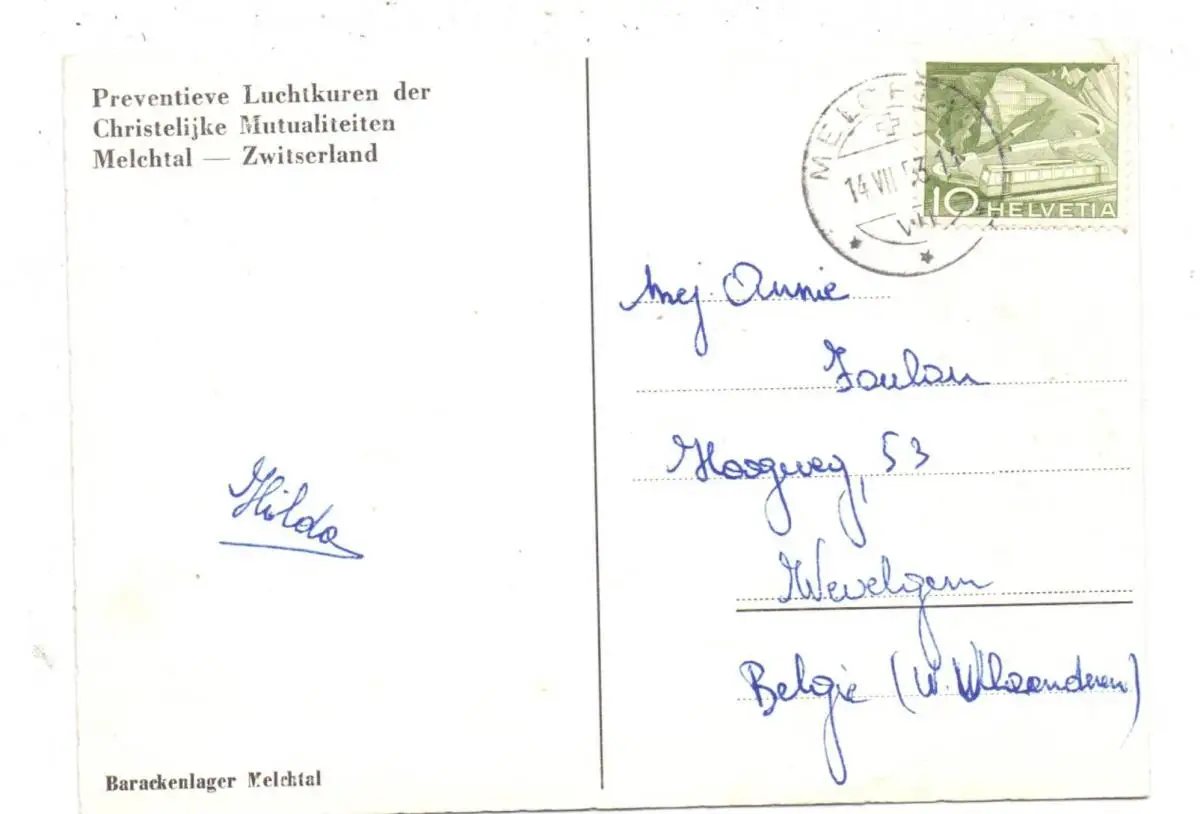 Preventieve Luchtkuren der
Christelijke Mutualiteiten
Melchtal — Zwitserland
Hilda
Barackenlager Melchtal
14 VII 53
10 HELVETIA
Mej. Annie
Hoogweg, 53
Wevelgem
België (W. Vlaanderen)